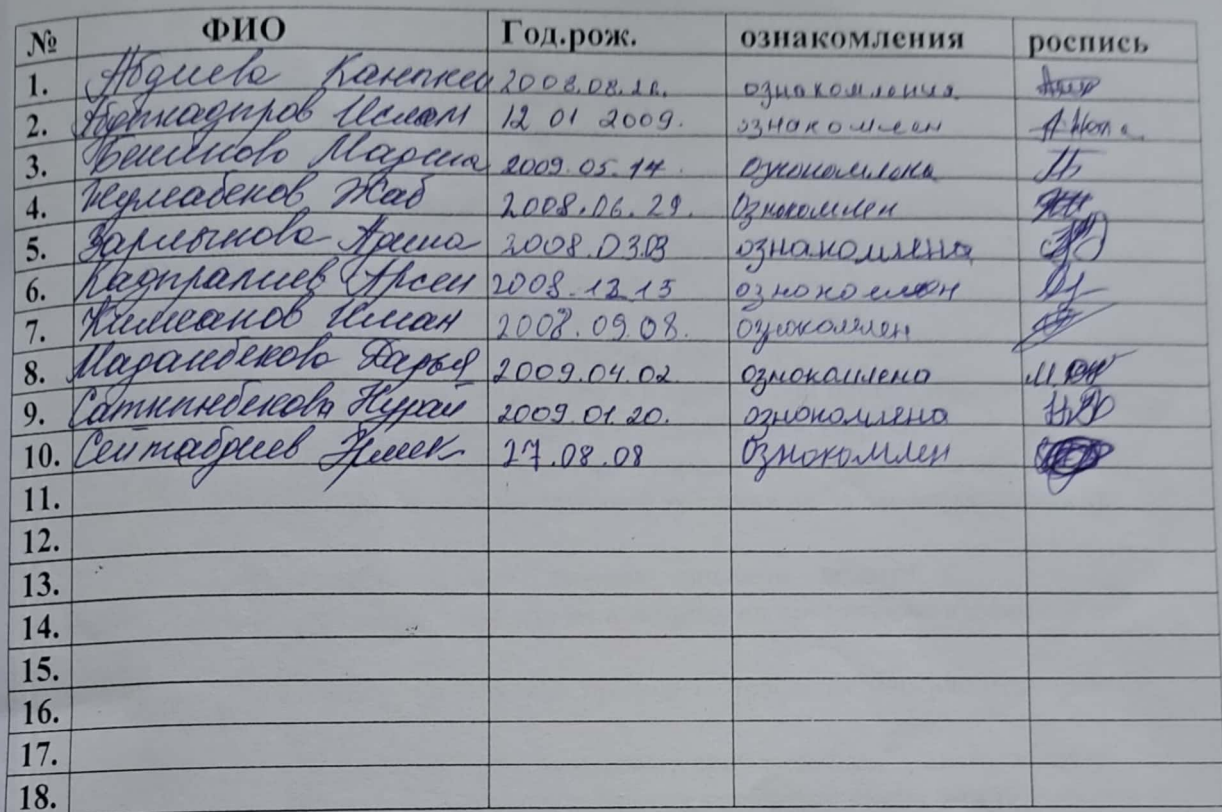 № ФИО Год.рож. ознакомления роспись
1. Абдиева 2008.08. ознакомления
2. Ислам 12 01 2009. ознакомлен
3. Мадина 2009.05.14 Ознокомлена
4. Жумабеков Жаб 2008.06.29. Ознокомлен
5. Зарлыкова 2008.03.03 ознакомлена
6. Кадыралиев Арсен 2008.12.15 ознокомлен
7. Иман 2008.09.08. ознокомлен
8. Маданбекова Дарья 2009.04.02 ознокомлена
9. Сатынбекова Нурай 2009.01.20. ознокомлена
10. Сейтабдиев Эрмек 27.08.08 Ознокомлен
11.
12.
13.
14.
15.
16.
17.
18.